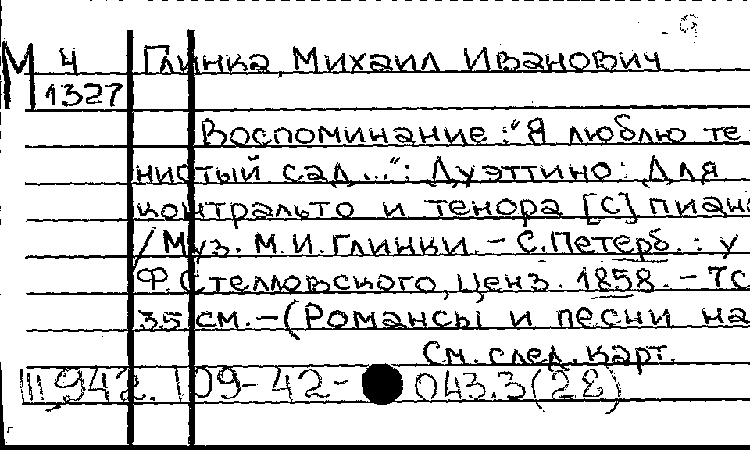 М 4 Глинка, Михаил Иванович
1327
Воспоминание: "Я люблю те
нистый сад...": Дуэттино: Для
контральто и тенора [с] пиан
/ Муз. М.И. Глинки. - С.Петерб.: у
Ф. Стелловского, ценз. 1858. - 7с
35 см. - (Романсы и песни на
См. след. карт.
III,942. 109-42- 043.3(28)